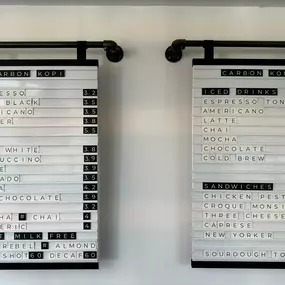 CARBON KOPI
ESSO 3.2
BLACK 3.5
ICANO 3.5
3.8
5.5
WHITE 3.8
UCCINO 3.9
3.9
ADO 3.5
4.2
CHOCOLATE 3.9
3.2
HA # CHAI 4
ERIC 4
MILK FREE
REBEL # ALMOND
SHOT 60 DECAF 60
CARBON KOP
ICED DRINKS
ESPRESSO TON
AMERICANO
LATTE
CHAI
MOCHA
CHOCOLATE
COLD BREW
SANDWICHES
CHICKEN PEST
CROQUE MONSI
THREE CHEESE
CAPRESE
NEW YORKER
SOURDOUGH TO